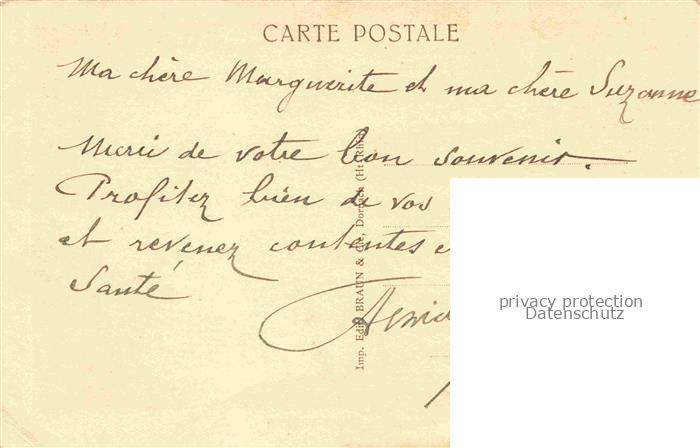 CARTE POSTALE
Ma chère Marguerite et ma chère Suzanne
Merci de votre bon souvenir.
Profitez bien de vos
et revenez contentes
Santé
Imp. Edit. BRAUN & Cie, Dornach (Ht-Rhin)
privacy protection
Datenschutz